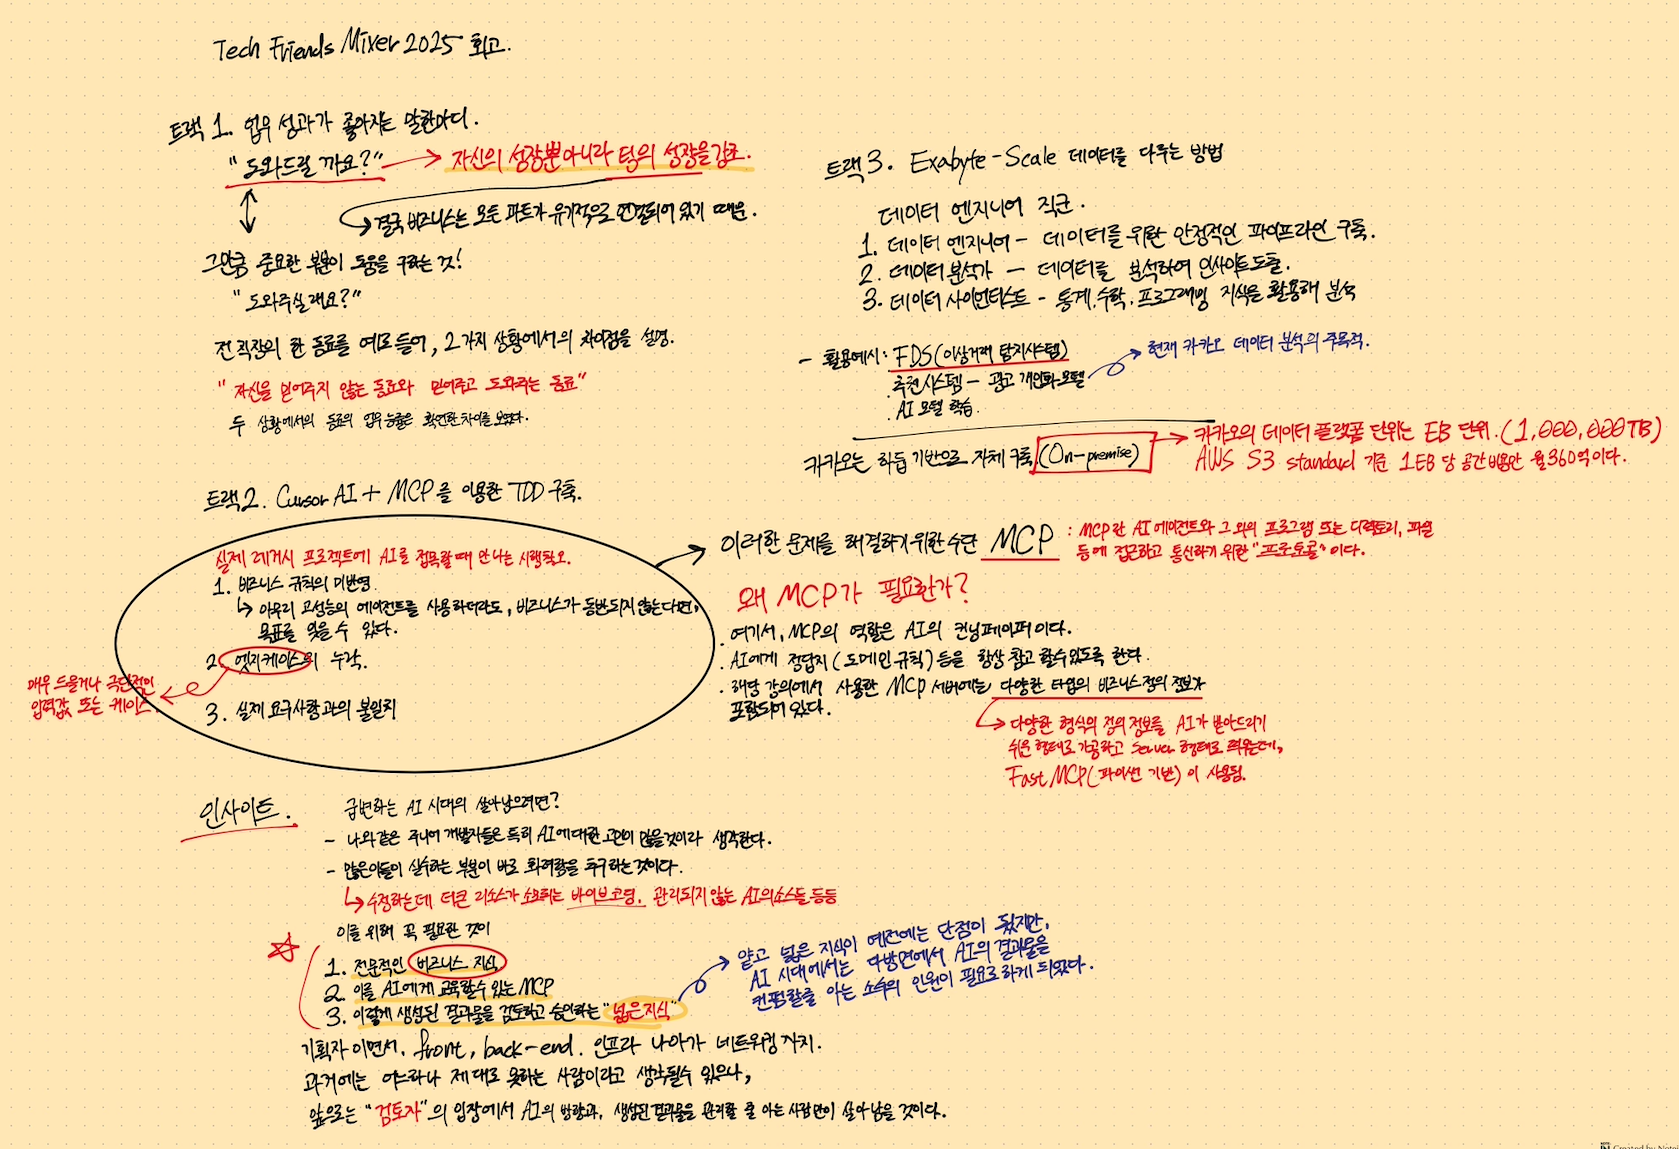 Tech Friends Mixer 2025 회고.
트랙 1. 업무 성과가 좋아지는 말한마디.
"도와드릴 까요?" → 자신의 성장뿐아니라 팀의 성장을 강조.
결국 비즈니스는 모든 파트가 유기적으로 연결되어 있기 때문.
그만큼 중요한 부분이 도움을 구하는 것!
"도와주실래요?"
전 직장의 한 동료를 예로들어, 2가지 상황에서의 차이점을 설명.
"자신을 믿어주지 않는 동료와 믿어주고 도와주는 동료"
두 상황에서의 동료의 업무능률은 확연한 차이를 보였다.
트랙2. Cursor AI + MCP를 이용한 TDD 구축.
실제 레거시 프로젝트에 AI를 접목할 때 만나는 시행착오.
1. 비즈니스 규칙의 미반영
↳ 아무리 고성능의 에이전트를 사용하더라도, 비즈니스가 동반되지 않는다면,
목표를 잊을 수 있다.
2. 엣지케이스의 누락.
매우 드물거나 극단적인
입력값 또는 케이스.
3. 실제 요구사항과의 불일치
이러한 문제를 해결하기 위한 수단 MCP
: MCP란 AI 에이전트와 그 외의 프로그램 또는 디렉토리, 파일
등에 접근하고 통신하기 위한 "프로토콜"이다.
왜 MCP가 필요한가?
. 여기서, MCP의 역할은 AI의 컨닝페이퍼이다.
. AI에게 정답지(도메인 규칙)등을 항상 참고 할수있도록 한다.
. 해당 강의에서 사용한 MCP 서버에는 다양한 타입의 비즈니스 정의 정보가
포함되어 있다.
→ 다양한 형식의 정의 정보를 AI가 받아드리기
쉬운 형태로 가공하고 server 형태로 띄우는데,
Fast MCP(파이썬 기반)이 사용됨.
트랙3. Exabyte-Scale 데이터를 다루는 방법
데이터 엔지니어 직군.
1. 데이터 엔지니어 - 데이터를 위한 안정적인 파이프라인 구축.
2. 데이터 분석가 - 데이터를 분석하여 인사이트 도출.
3. 데이터 사이언티스트 - 통계.수학.프로그래밍 지식을 활용해 분석
- 활용예시: FDS(이상거래 탐지시스템)
. 추천시스템 - 광고 개인화모델
→ 현재 카카오 데이터 분석의 주목적.
. AI 모델 학습.
카카오는 하둡 기반으로 자체 구축 (On-premise)
→ 카카오의 데이터 플랫폼 단위는 EB 단위.(1,000,000TB)
AWS S3 standard 기준 1EB 당 공간비용만 월360억이다.
인사이트.
급변하는 AI 시대의 살아남으려면?
- 나와같은 주니어 개발자들은 특히 AI에 대한 고민이 많을것이라 생각한다.
- 많은이들이 실수하는 부분이 바로 화려함을 추구하는것이다.
↳ 수정하는데 더큰 리소스가 소요되는 바이브코딩. 관리되지 않는 AI의소스들 등등
이를 위해 꼭 필요한 것이
1. 전문적인 비즈니스 지식
2. 이를 AI에게 교육할수 있는 MCP
3. 이렇게 생성된 결과물을 검토하고 승인하는 "넓은지식"
→ 얕고 넓은 지식이 예전에는 단점이 됬지만,
AI 시대에서는 다방면에서 AI의 결과물을
컨펌할줄 아는 소수의 인원이 필요로하게 되었다.
기획자 이면서, front, back-end. 인프라 나아가 네트워킹 까지.
과거에는 어느하나 제대로 못하는 사람이라고 생각될수 있으나,
앞으로는 "검토자"의 입장에서 AI의 방향과, 생성된 결과물을 관리할 줄 아는 사람만이 살아남을 것이다.